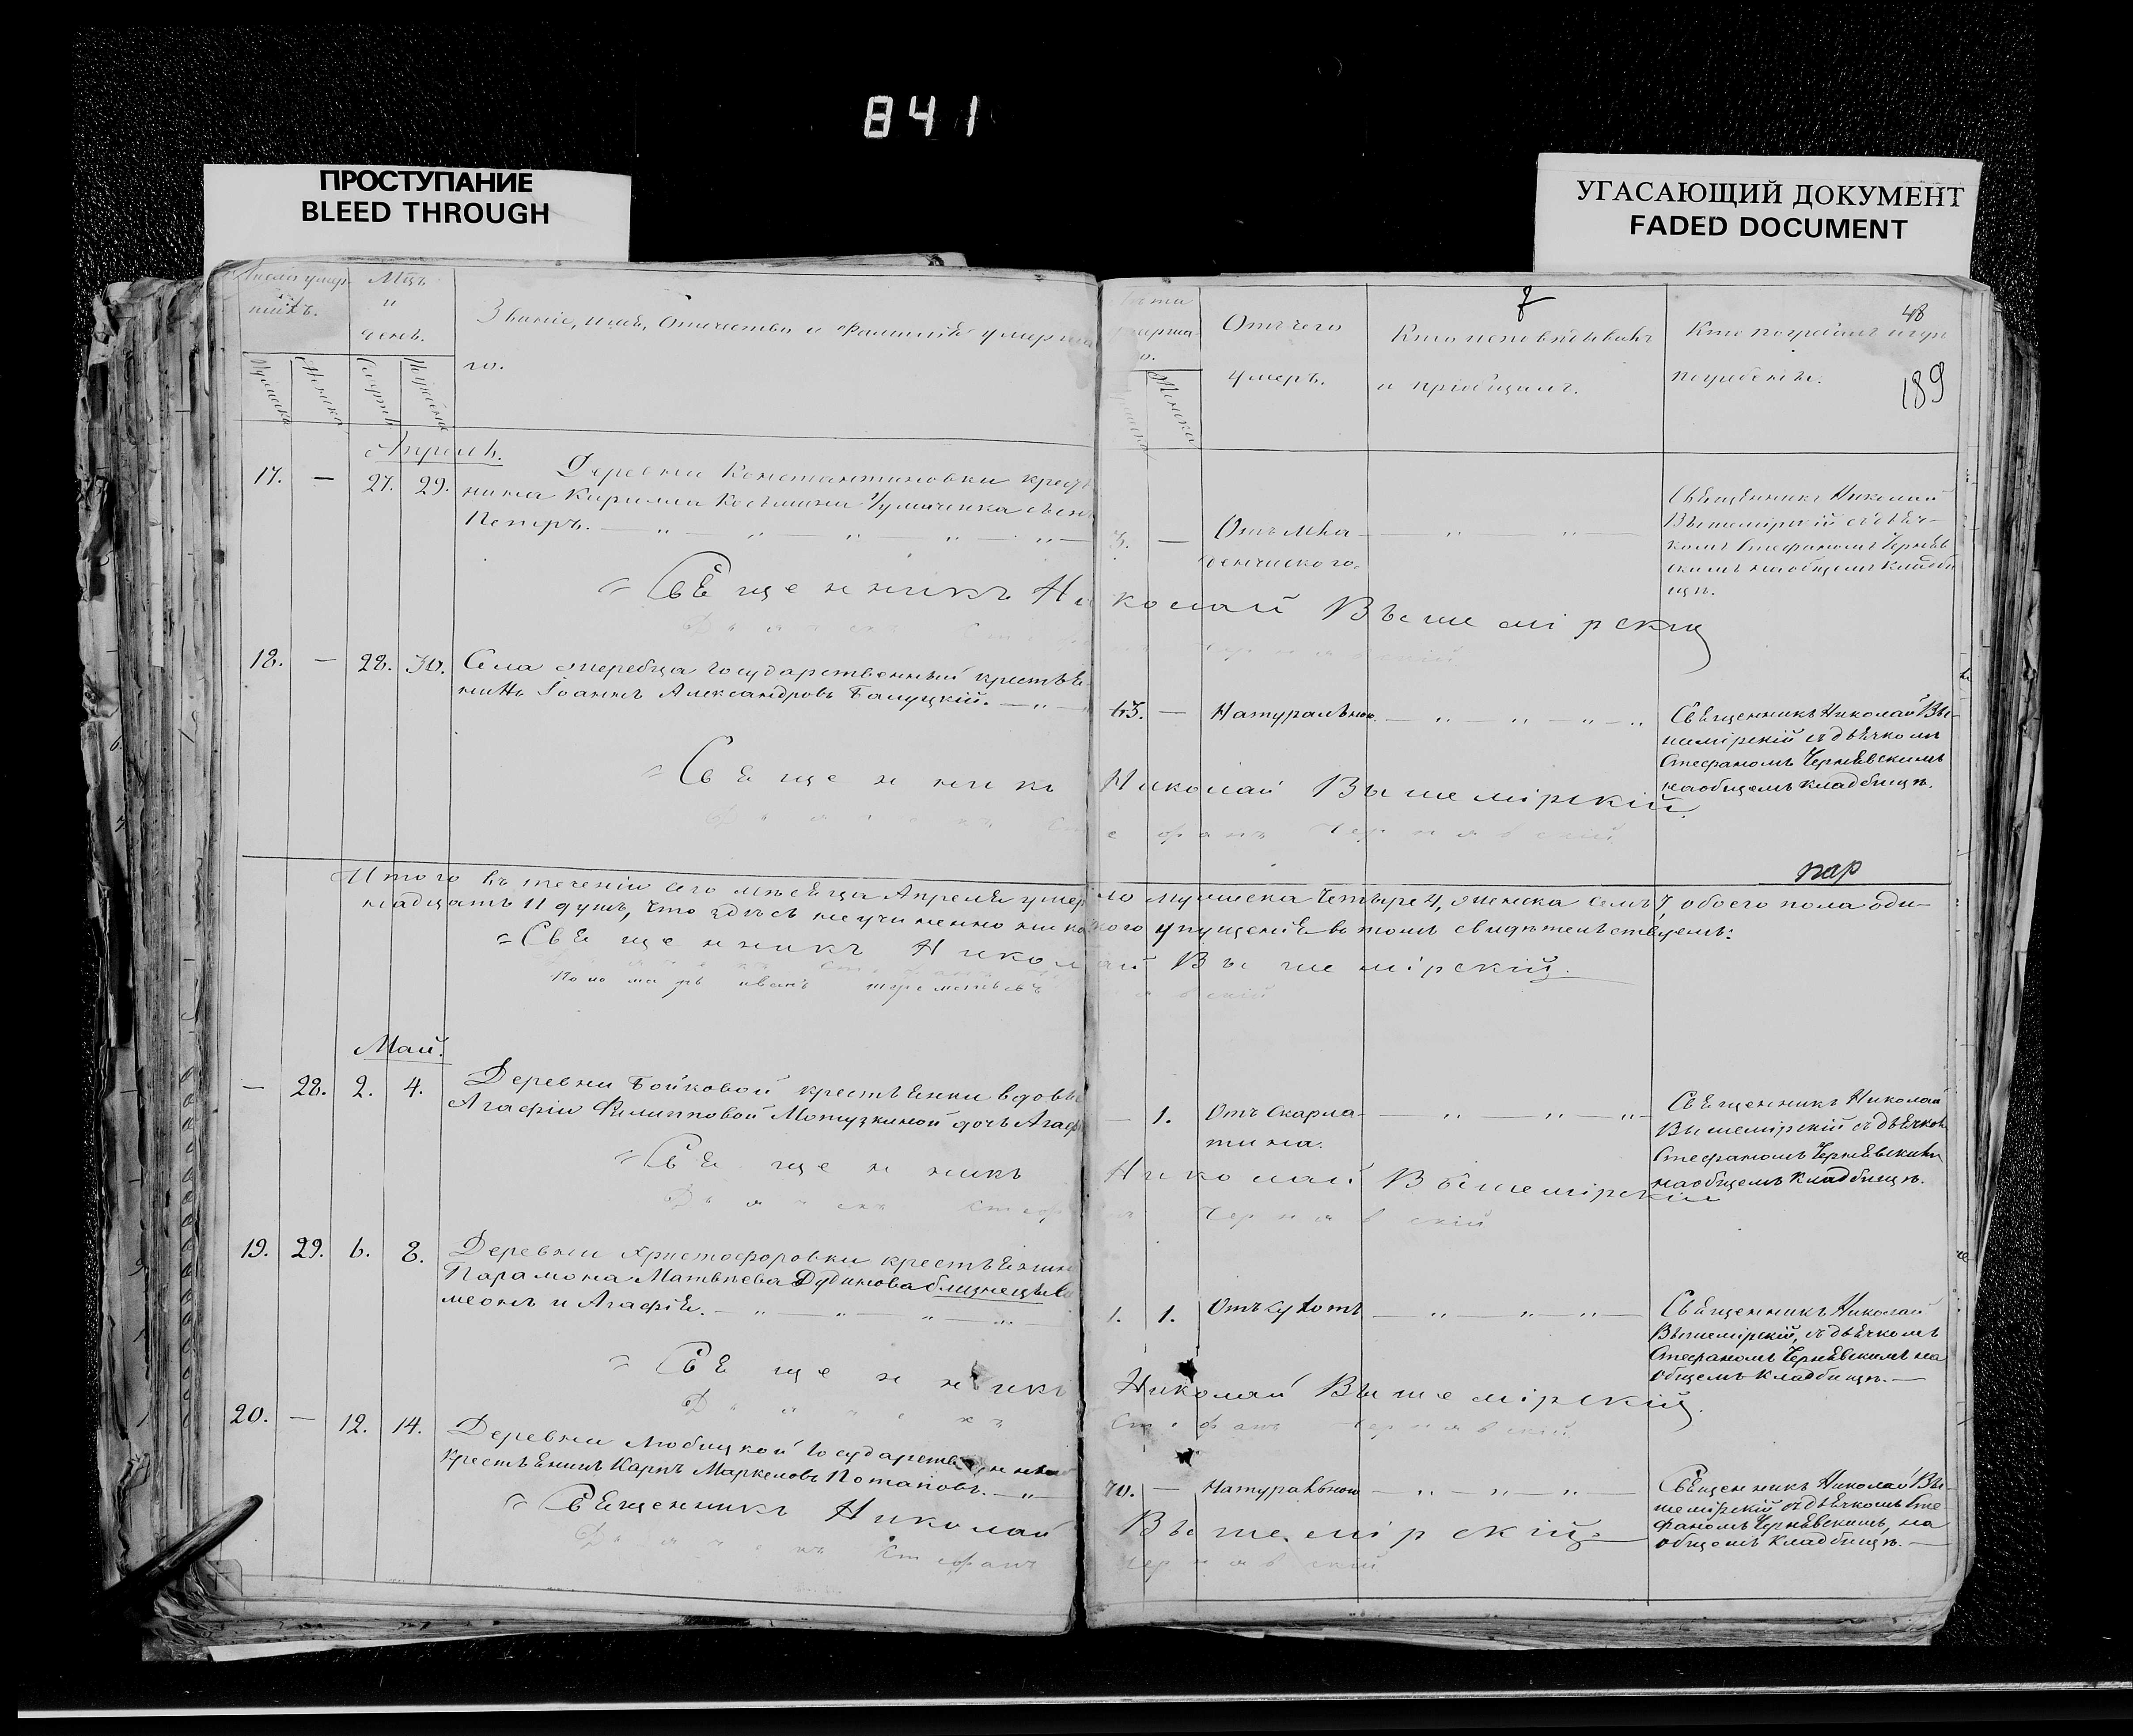 841
ПРОСТУПАНИЕ
BLEED THROUGH
УГАСАЮЩИЙ ДОКУМЕНТ
FADED DOCUMENT
48
189
Мцъ
и
день.
Званіе, имя, Отчество и Фамилія умерша
го.
Отъ чего
умеръ.
Кто исповѣдывалъ
и пріобщалъ.
Кто погребалъ и гдѣ
погребены.
Апрель.
17. — 27. 29.
Деревни Константиновки крестья
нина Кирилла сынъ
Петръ.
3. — Отъ мла-
денческого.
Священникъ Николай
Вышемірскій съ дьяч-
комъ Стефаномъ Черняв
скимъ на общемъ кладби
щѣ.
Священникъ Николай Вышемірскій
18. — 28. 30.
Села теребца государственный крестья
нинъ Іоаннъ Александровъ Балуцкій.
63. — Натуральною.
Священникъ Николай Вы-
шемірскій съ дьячкомъ
Стефаномъ Чернявскимъ
на общемъ кладбищѣ.
Священникъ Николай Вышемірскій.
Дьячекъ Стефанъ Чернявскій
пар
Итого въ теченіи сего мѣсяца Апреля умерло мужеска четыре 4, женска семь 7, обоего пола оди-
надцать 11 душъ, что здѣсь неучиненно никакого упущенія въ томъ свидѣтельствуемъ:
Священникъ Николай Вышемірскій.
Пономарь иванъ
Май.
— 28. 2. 4.
Деревни Бойковой крестьянки вдовы
Агафіи Филипповой Мотузкиной дочь Агаф
— 1. Отъ скарла-
тина.
Священникъ Николай
Вышемірскій съ дьячком
Стефаномъ Чернявскимъ
на общемъ кладбищѣ.
Священникъ Николай Вышемірскій
Дьячекъ Стефанъ Чернявскій
19. 29. 6. 8.
Деревни Христофоровки крестьянина
Парамона Матвѣева Дудинова близнецы Си
меонъ и Агафія.
1. 1. Отъ сухотъ
Священникъ Николай
Вышемірскій, съ дьячкомъ
Стефаномъ Чернявскимъ на
общемъ кладбищѣ.
Священникъ Николай Вышемірскій.
Дьячекъ Стефанъ Чернявскій
20. — 12. 14.
Деревни Любицкой Государственный
крестьянинъ Карпъ Маркеловъ Потаповъ.
70. — Натуральною
Священникъ Николай Вы-
шемірскій съ дьячкомъ Сте
фаномъ Чернявскимъ, на
общемъ кладбищѣ.
Священникъ Николай Вышемірскій
Дьячекъ Стефанъ Чернявскій